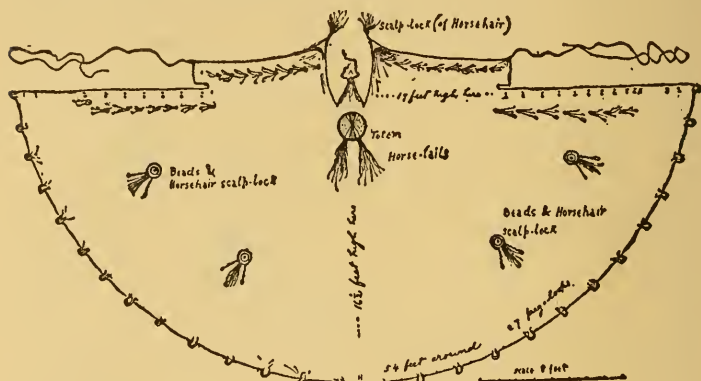 Scalp-lock (of Horsehair)
....17 feet high here ..
Totem
Horse-tails
Beads &
Horsehair scalp-lock
Beads & Horsehair
scalp-lock
.... 16½ feet high here
27 peg-loops.
54 feet around
scale 8 feet